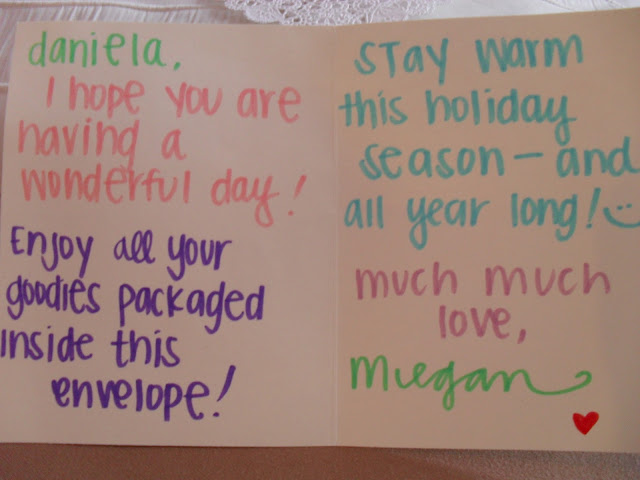 daniela,
I hope you are
having a
wonderful day!
Enjoy all your
goodies packaged
inside this
envelope!
Stay warm
this holiday
season - and
all year long! :)
much much
love,
Megan